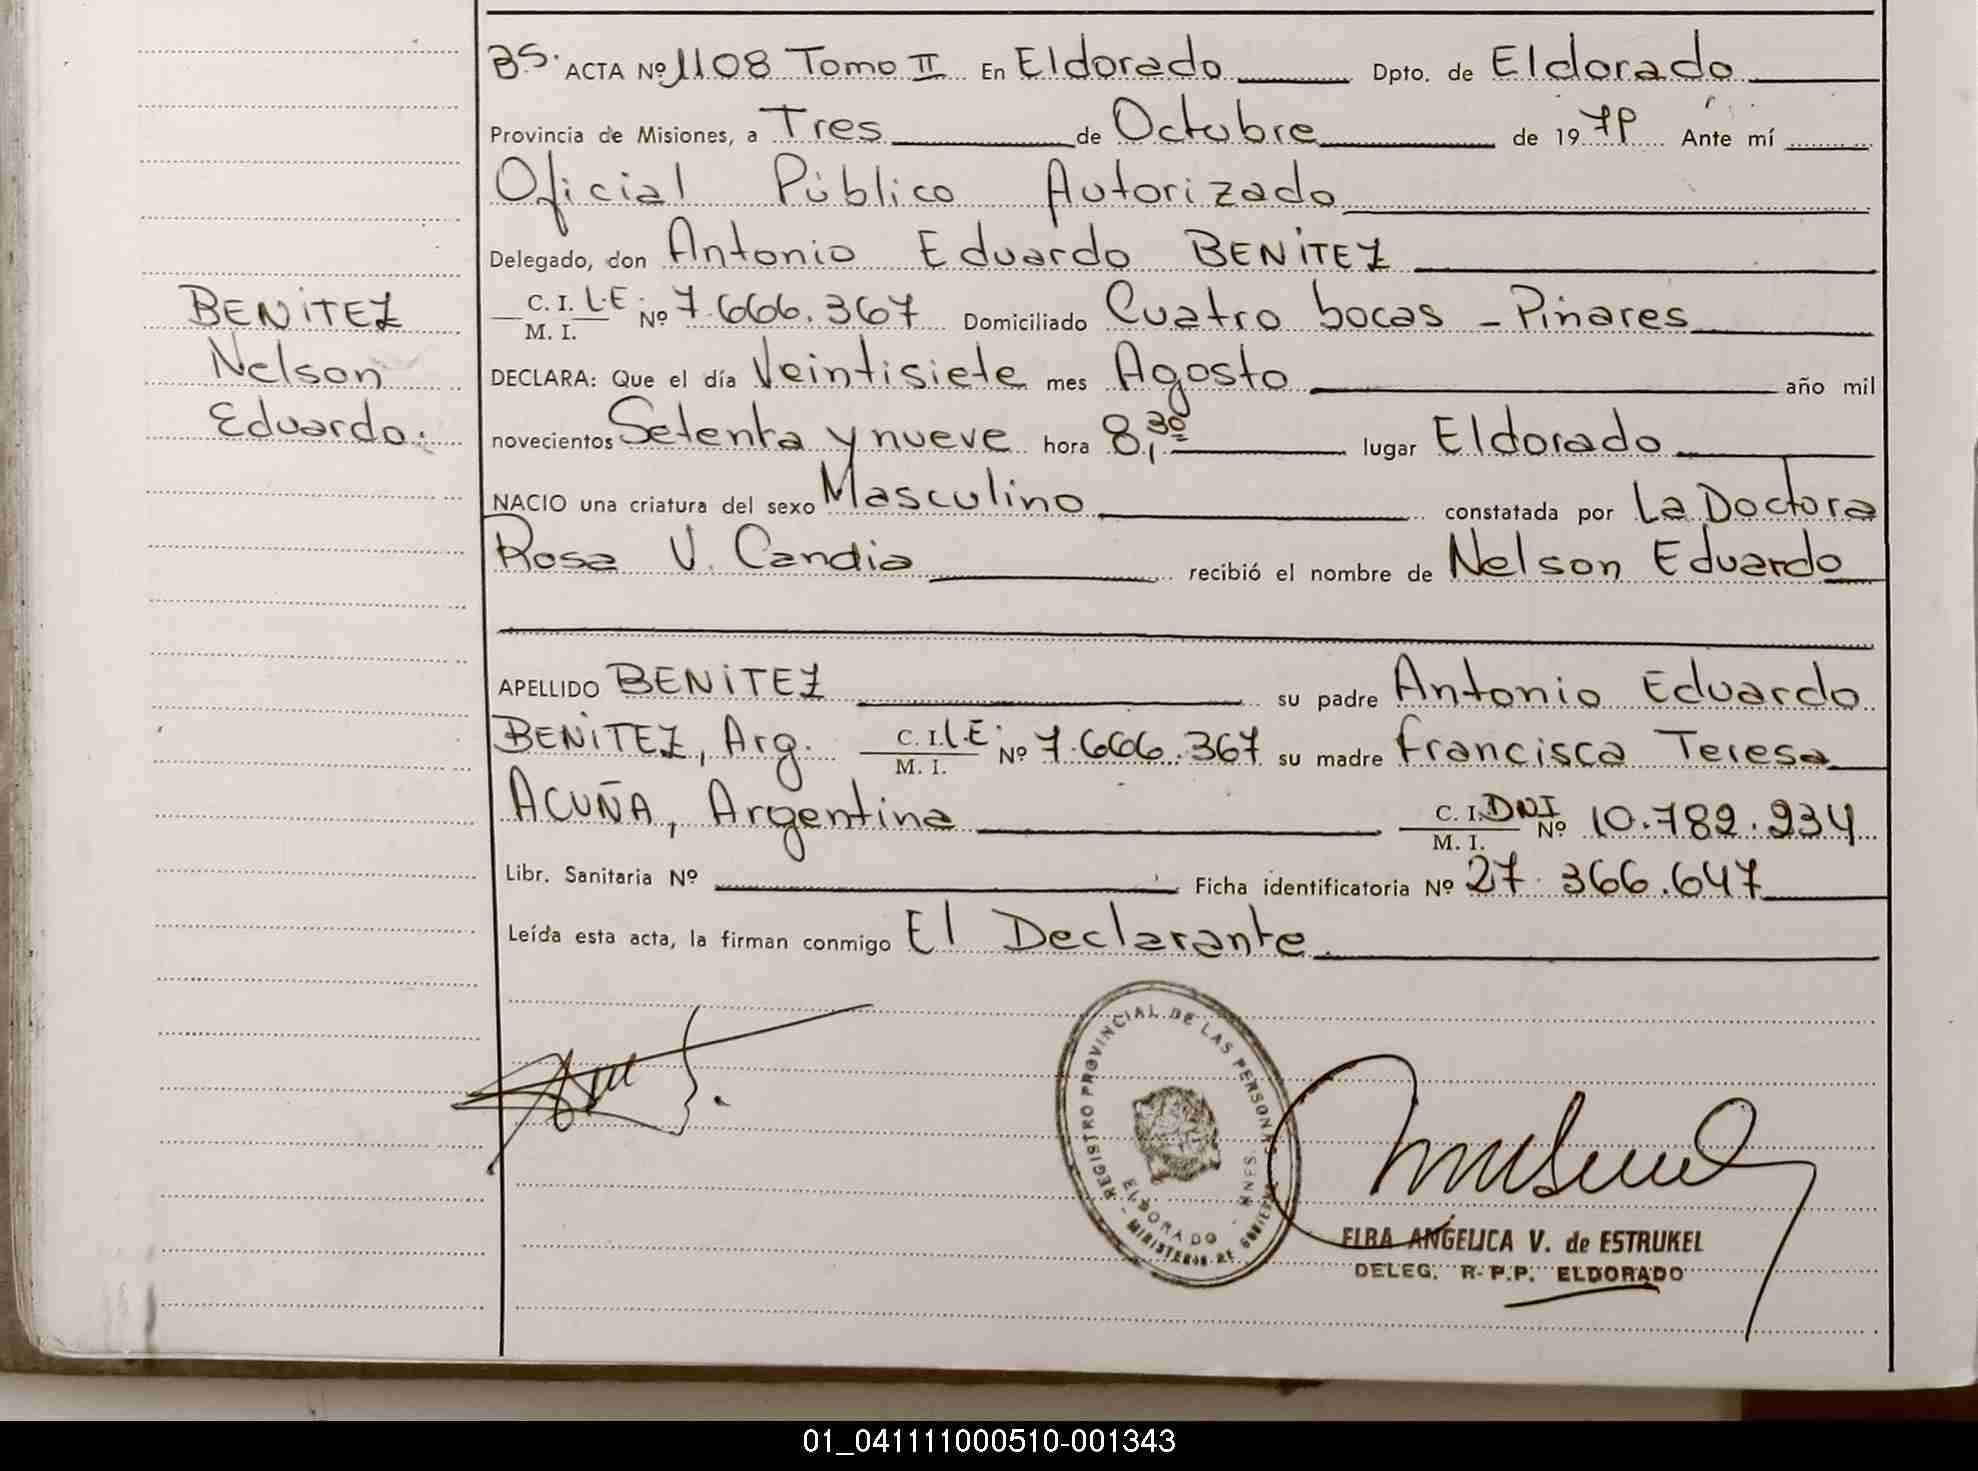 BS. ACTA Nº 1108 Tomo II En Eldorado Dpto. de Eldorado
Provincia de Misiones, a Tres de Octubre de 1979 Ante mí
Oficial Público Autorizado
Delegado, don Antonio Eduardo BENiTEZ
C. I. L.E. Nº 7.666.367 Domiciliado Cuatro bocas - Pinares
M. I.
BENiTEZ
Nelson
Eduardo.
DECLARA: Que el día Veintisiete mes Agosto año mil
novecientos Setenta y nueve hora 8,30 lugar Eldorado
NACIO una criatura del sexo Masculino constatada por La Doctora
Rosa V. Candia recibió el nombre de Nelson Eduardo
APELLIDO BENiTEZ su padre Antonio Eduardo
BENiTEZ, Arg. C. I. L.E. Nº 7.666.367 su madre Francisca Teresa
M. I.
ACUÑA, Argentina C. I. DNI Nº 10.789.934
M. I.
Libr. Sanitaria Nº Ficha identificatoria Nº 27.366.647
Leída esta acta, la firman conmigo El Declarante.
REGISTRO PROVINCIAL DE LAS PERSONAS
ELDORADO - MNES.
MINISTERIO DE GOBIERNO
ELBA ANGELICA V. de ESTRUKEL
DELEG. R.P.P. ELDORADO
01_041111000510-001343